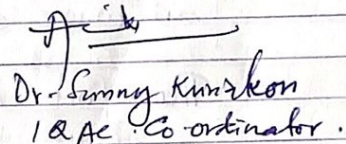 Dr. Sunny Kuriakon
IQAC Co-ordinator.